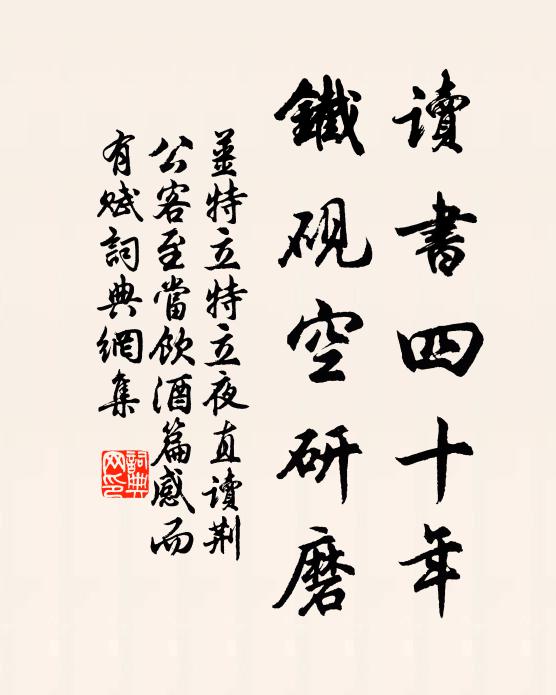 讀書四十年
鐵硯空研磨
姜特立特立夜直讀荆
公客至當飲酒篇感而
有賦詞典網集
詞典
网印